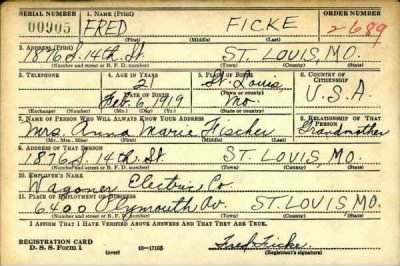 SERIAL NUMBER 1. NAME (Print) ORDER NUMBER
00905 FRED FICKE 2689
(First) (Middle) (Last)
2. ADDRESS (Print)
1876 S. 14th. St. ST. LOUIS, MO.
(Number and street or R. F. D. number) (Town) (County) (State)
3. TELEPHONE 4. AGE IN YEARS 5. PLACE OF BIRTH 6. COUNTRY OF CITIZENSHIP
21 St. Louis,
DATE OF BIRTH (Town or county)
Feb. 6, 1919 Mo. U.S.A.
(Exchange) (Number) (Mo.) (Day) (Yr.) (State or country)
7. NAME OF PERSON WHO WILL ALWAYS KNOW YOUR ADDRESS 8. RELATIONSHIP OF THAT PERSON
Mrs. Anna Marie Fischer Grandmother
(Mr., Mrs., Miss) (First) (Middle) (Last)
9. ADDRESS OF THAT PERSON
1876 S. 14th. St. ST. LOUIS, MO.
(Number and street or R. F. D. number) (Town) (County) (State)
10. EMPLOYER'S NAME
Wagoner Electric Co.
11. PLACE OF EMPLOYMENT OR BUSINESS
6400 Plymouth Av. ST. LOUIS MO.
(Number and street or R. F. D. number) (Town) (County) (State)
I AFFIRM THAT I HAVE VERIFIED ABOVE ANSWERS AND THAT THEY ARE TRUE.
REGISTRATION CARD
D. S. S. Form 1 (over) 16—17105 Fred Ficke
(Registrant's signature)